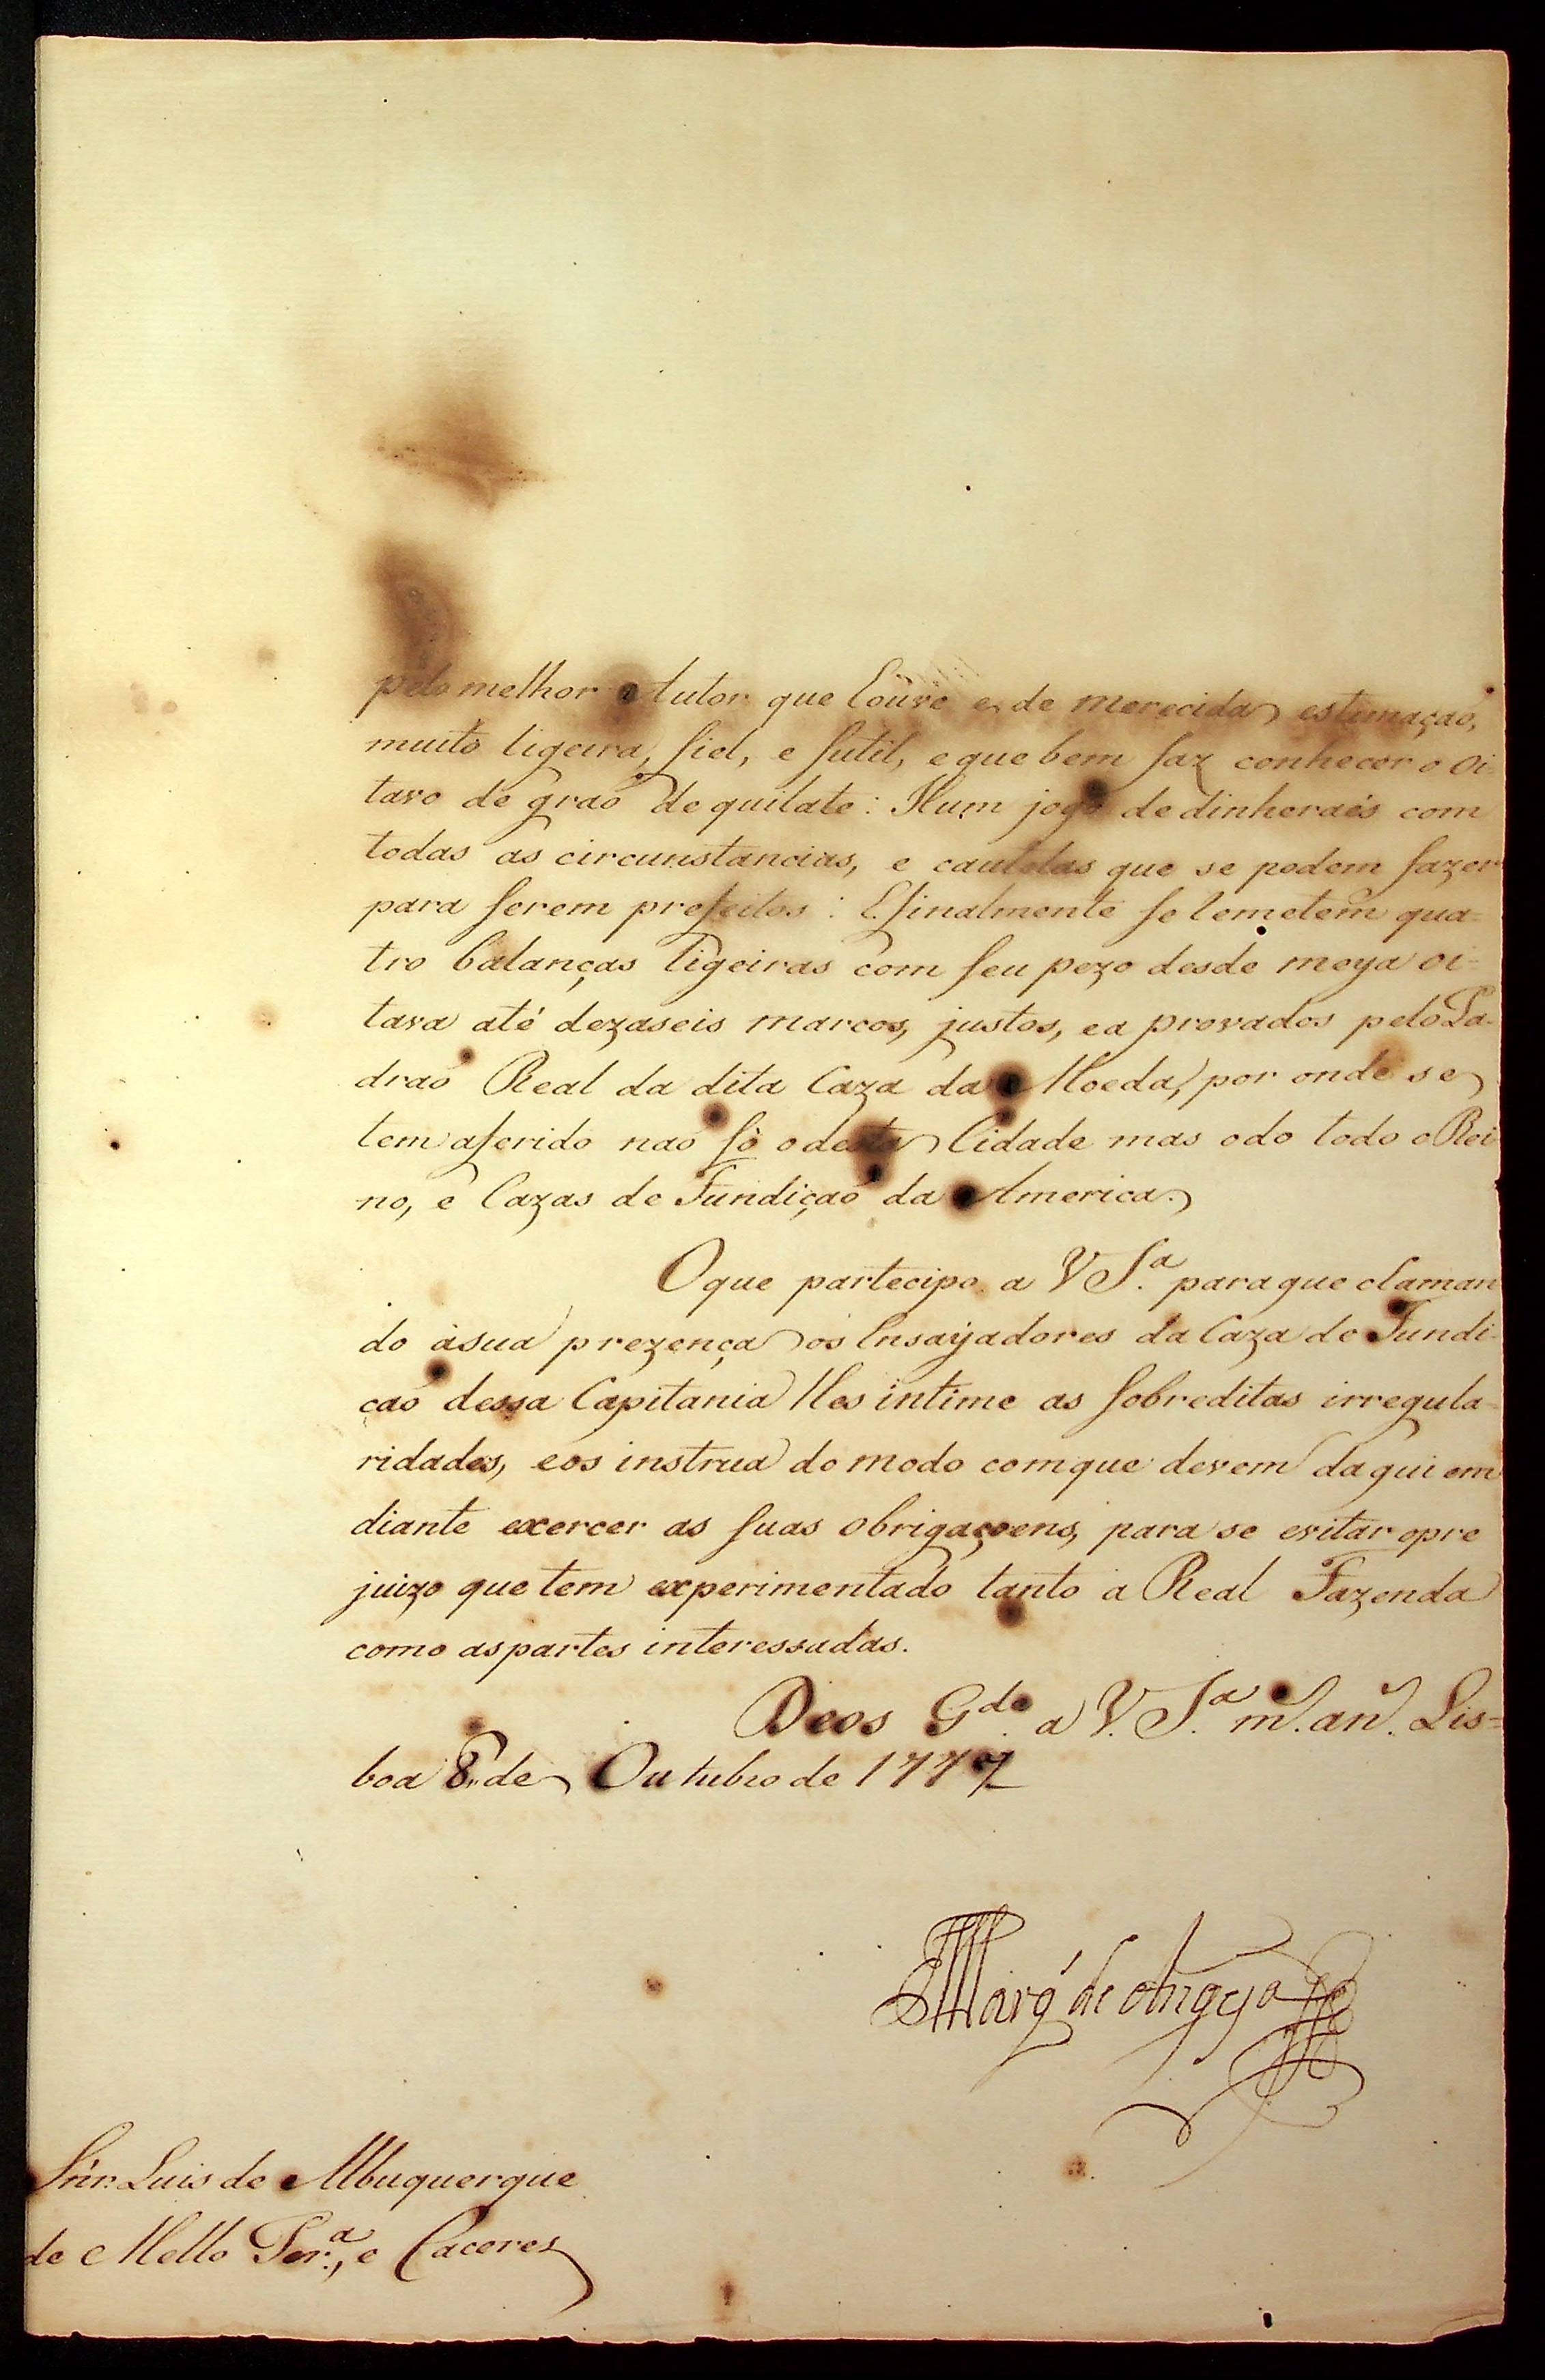 pelo melhor Autor que houve e de merecida estimaçaõ,
muito ligeira, fiel, e sutil, e que bem faz conhecer o oi-
tavo de graõ de quilate: Hum jogo de dinheraes com
todas as circunstancias, e cautelas que se podem fazer
para serem prefeitos: E finalmente se remetem qua=
tro balanças ligeiras com seu pezo desde meya oi=
tava até dezaseis marcos, justos, ea provados pelo Pa-
draõ Real da dita Caza da Moeda, por onde se
tem aferido naõ só o desta Cidade mas odo todo o Rei
no, e Cazas de Fundiçaõ da America.
O que partecipo a V S.ª para que chaman
do àsua prezença os Ensayadores da Caza de Fundi-
caõ dessa Capitania lhes intime as sobreditas irregula-
ridades, eos instrua do modo comque devem daqui em
diante exercer as suas obrigaçoens, para se evitar opre
juizo que tem experimentado tanto a Real Fazenda
como aspartes interessadas.
Deos G.de a V. S.ª m.s an.s Lis=
boa 8,, de Outubro de 1777
Marq de Angeja
Snr. Luis de Albuquerque
de Mello Per.ª, e Caceres